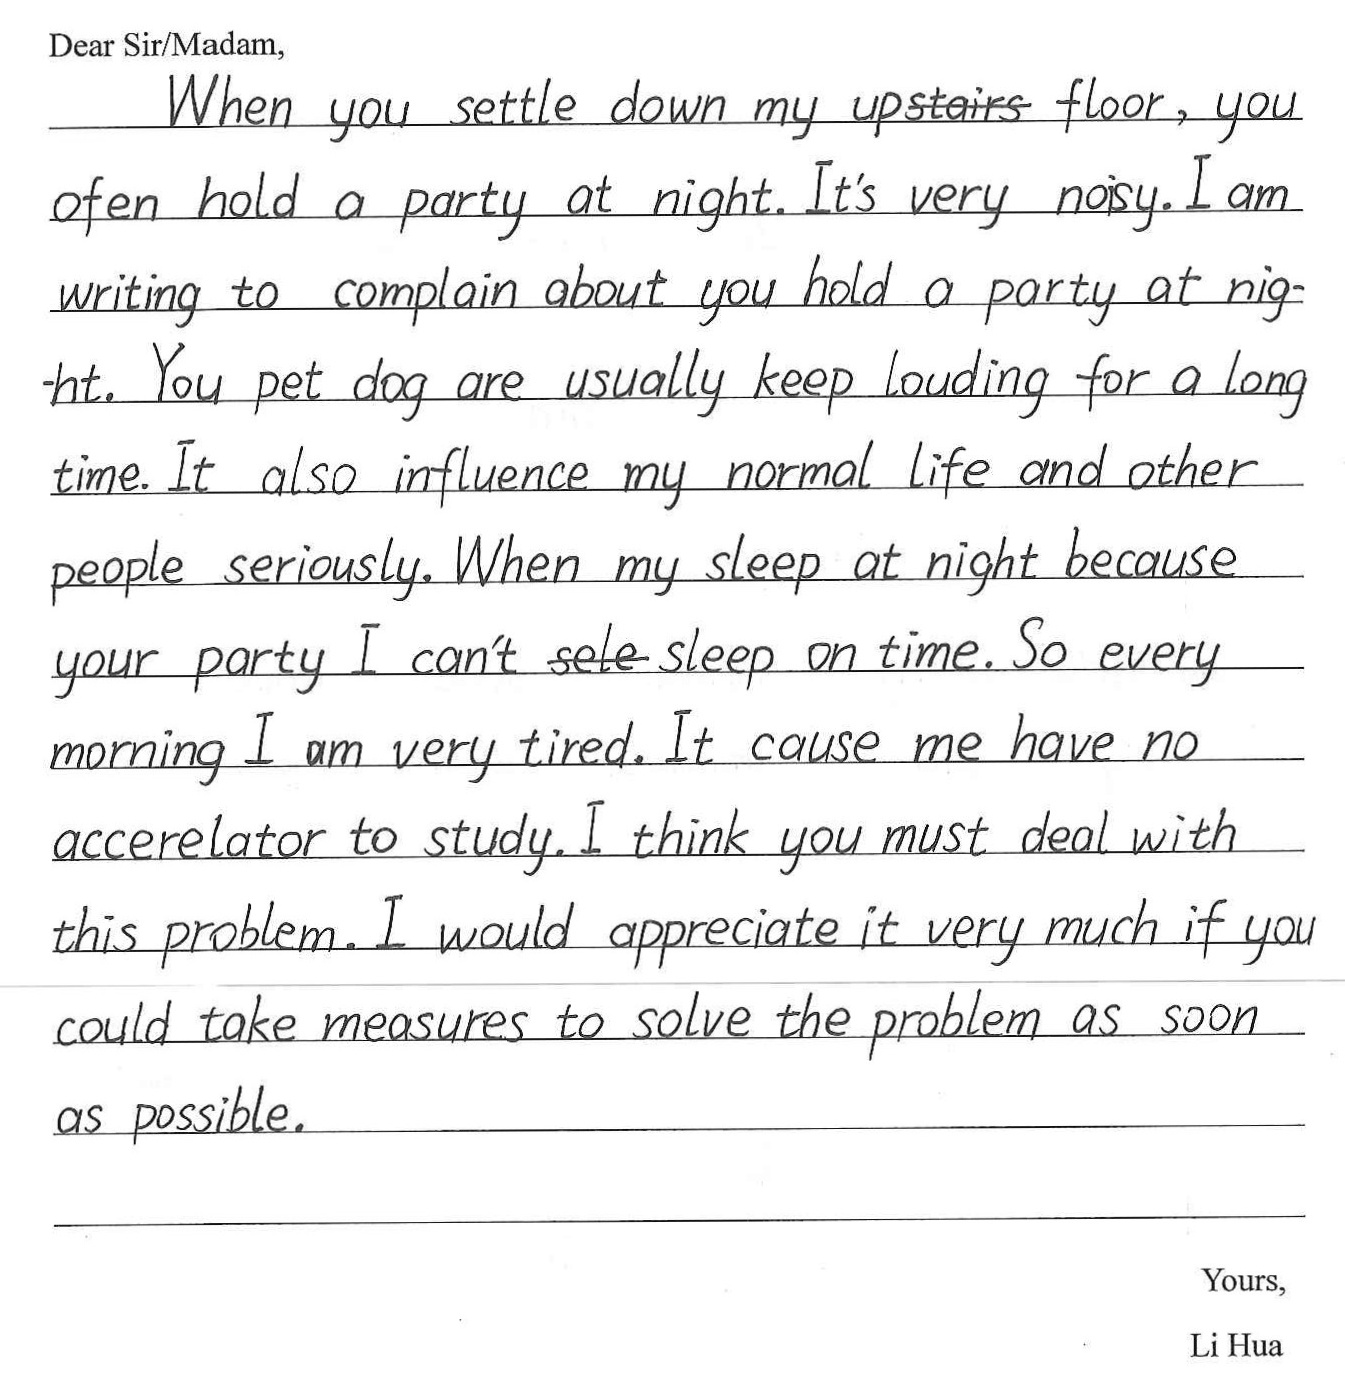 Dear Sir/Madam,
When you settle down my up floor, you
ofen hold a party at night. It's very noisy. I am
writing to complain about you hold a party at nig-
-ht. You pet dog are usually keep louding for a long
time. It also influence my normal life and other
people seriously. When my sleep at night because
your party I can't sleep on time. So every
morning I am very tired. It cause me have no
accerelator to study. I think you must deal with
this problem. I would appreciate it very much if you
could take measures to solve the problem as soon
as possible.
Yours,
Li Hua